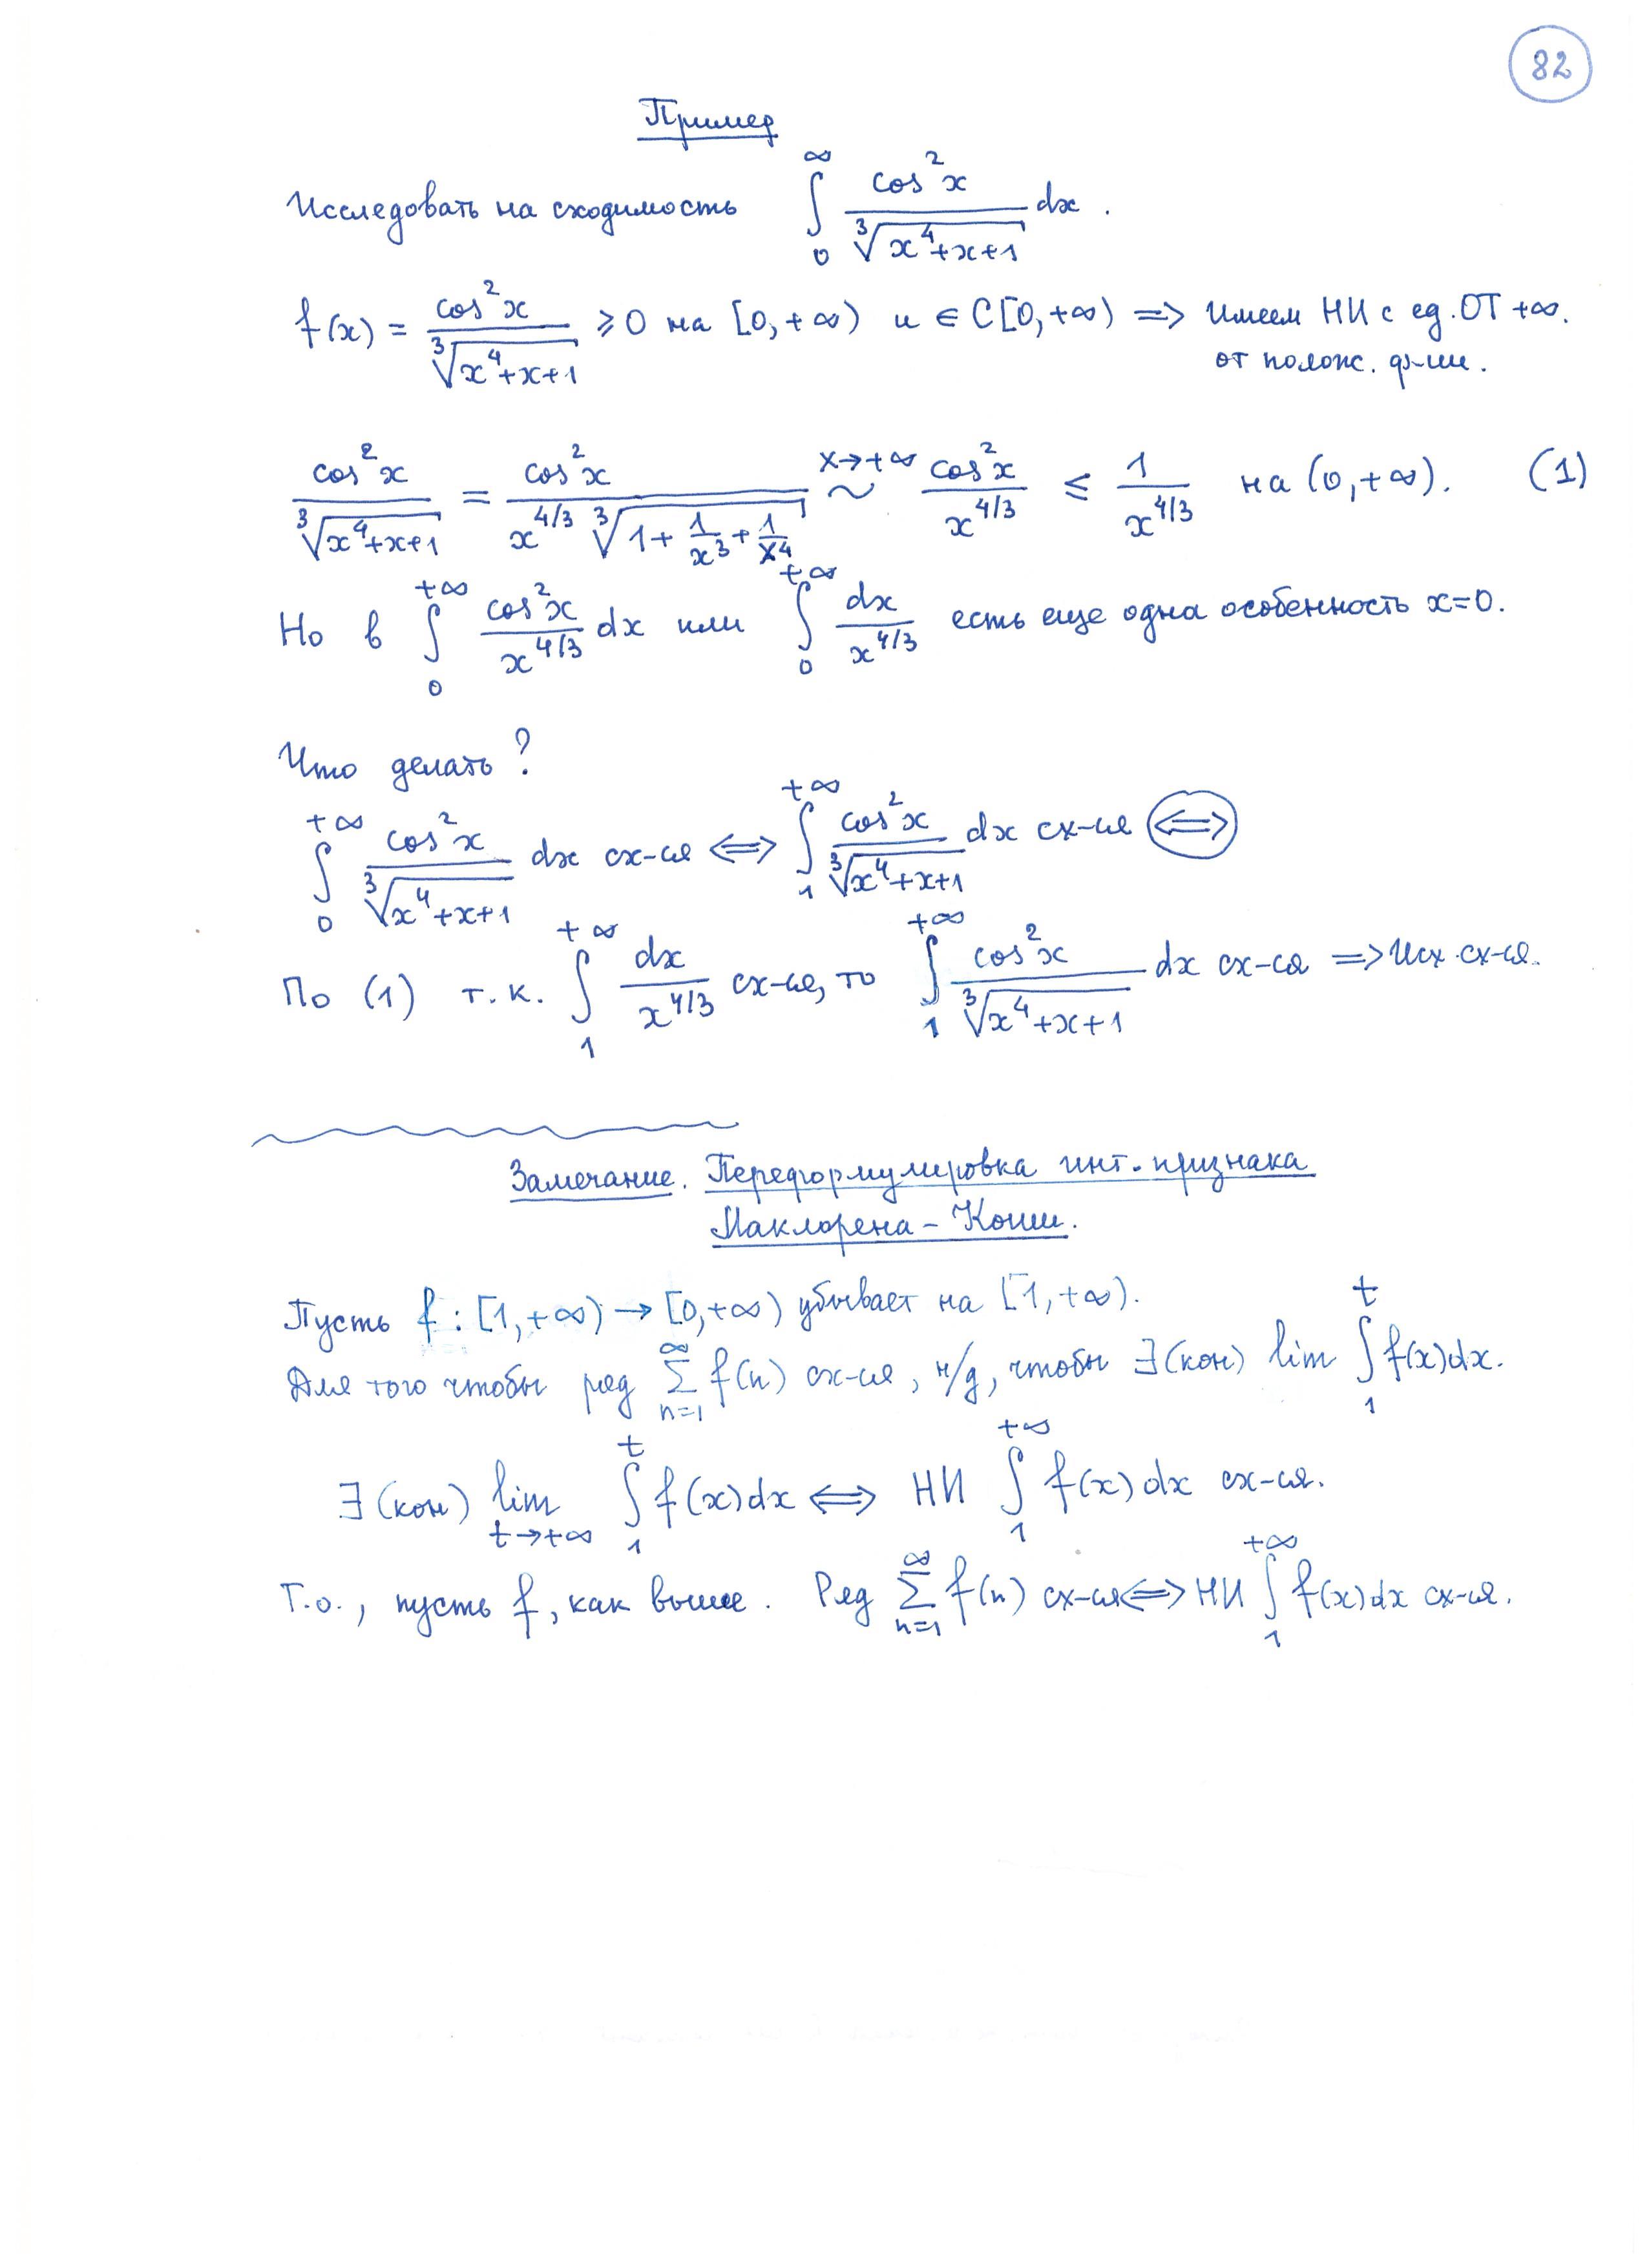 82
Пример
Исследовать на сходимость ∫_0^∞ cos²x / ∛(x⁴+x+1) dx.
f(x) = cos²x / ∛(x⁴+x+1) ⩾ 0 на [0,+∞) и ∈ C[0,+∞) ⇒ имеем НИ с ед. ОТ +∞.
от полож. ф-ии.
cos²x / ∛(x⁴+x+1) = cos²x / (x^{4/3} ∛(1 + 1/x³ + 1/x⁴)) ~^{x→+∞} cos²x / x^{4/3} ⩽ 1 / x^{4/3} на (0,+∞). (1)
Но в ∫_0^{+∞} cos²x / x^{4/3} dx или ∫_0^{+∞} dx / x^{4/3} есть еще одна особенность x=0.
Что делать?
∫_0^{+∞} cos²x / ∛(x⁴+x+1) dx сх-ся ⇔ ∫_1^{+∞} cos²x / ∛(x⁴+x+1) dx сх-ся ⇔
По (1) т.к. ∫_1^{+∞} dx / x^{4/3} сх-ся, то ∫_1^{+∞} cos²x / ∛(x⁴+x+1) dx сх-ся ⇒ Исх. сх-ся.
Замечание. Переформулировка инт. признака
Маклорена - Коши.
Пусть f : [1,+∞) → [0,+∞) убывает на [1,+∞).
Для того чтобы ряд ∑_{n=1}^∞ f(n) сх-ся, н/д, чтобы ∃(кон) lim ∫_1^t f(x)dx.
∃(кон) lim_{t→+∞} ∫_1^t f(x)dx ⇔ НИ ∫_1^{+∞} f(x)dx сх-ся.
Т.о., пусть f, как выше. Ряд ∑_{n=1}^∞ f(n) сх-ся ⇔ НИ ∫_1^{+∞} f(x)dx сх-ся.